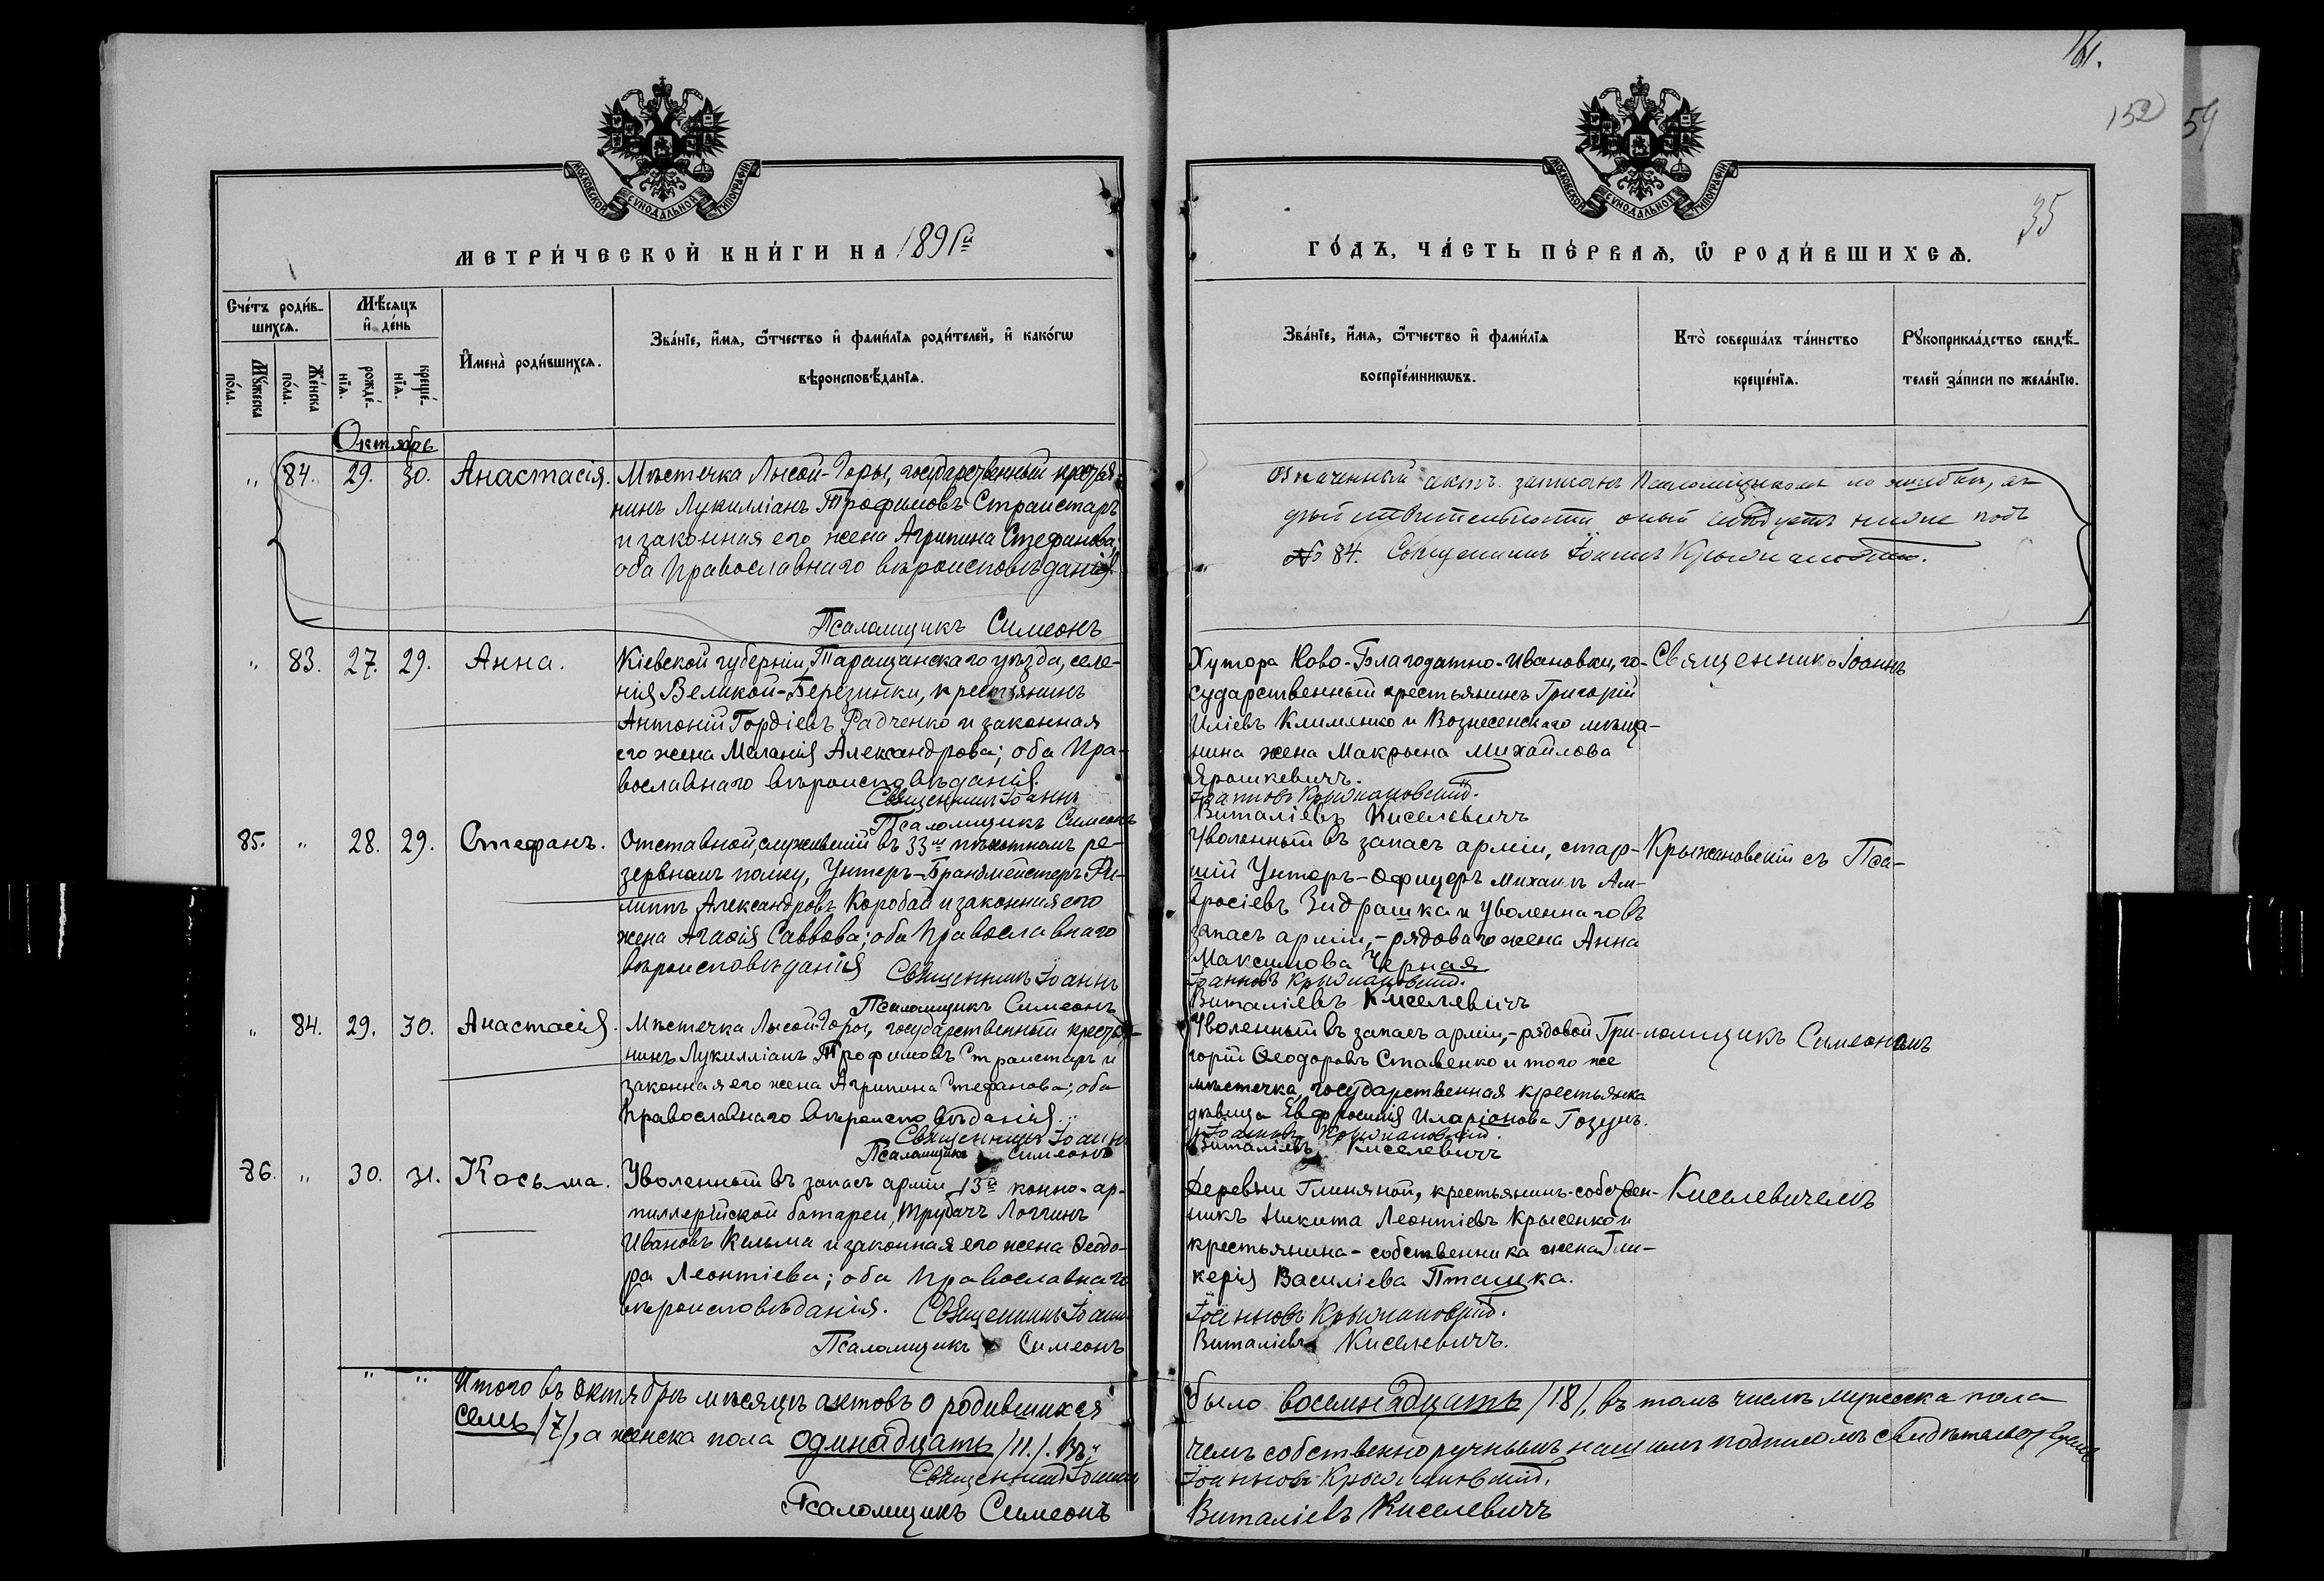 161.
152
54
35
МОСКОВСКОЙ СѴНОДАЛЬНОЙ ТИПОГРАФІИ
МОСКОВСКОЙ СѴНОДАЛЬНОЙ ТИПОГРАФІИ
МЕТРИ́ЧЕСКОЙ КНИ́ГИ НА 1891й
ГО́ДЪ, ЧА́СТЬ ПЕ́РВАѦ, Ѡ РОДИ́ВШИХСѦ.
Сче́тъ роди́в-
шихсѧ.
Мꙋ́жеска
по́ла.
Же́нска
по́ла.
Мѣ́сяцъ
и҆ де́нь
рожде́-
нїѧ.
креще́-
нїѧ.
И҆мена̀ роди́вшихсѧ.
Зва́нїе, и҆́мѧ, ѻ҆́тчество и҆ фами́лїѧ роди́телей, и҆ како́гѡ
вѣроисповѣ́данїѧ.
Зва́нїе, и҆́мѧ, ѻ҆́тчество и҆ фами́лїѧ
воспрїе́мникѡвъ.
Кто̀ соверша́лъ та́инство
креще́нїѧ.
Рꙋкоприкла́дство свидѣ́-
телей за́писи по жела́нїю.
Октябрь
" 84. 29. 30. Анастасія. Мѣстечка Лысой-Горы, государственный крестья-
нинъ Лукилліанъ Трофимовъ Страистаръ
и законная его жена Агрипина Стефанова;
оба Православнаго вѣроисповѣданія.
Псаломщикъ Симеонъ
Означенный актъ записанъ Псаломщикомъ по ошибки, въ
дѣйствительности оный слѣдуетъ ниже подъ
№ 84. Священникъ Іоаннъ Крыжановскій.
" 83. 27. 29. Анна. Кіевской губерніи, Таращанскаго уѣзда, селе-
нія Великой-Березинки, крестьянинъ
Антоній Гордіевъ Радченко и законная
его жена Меланія Александрова; оба Пра-
вославнаго вѣроисповѣданія.
Священникъ Іоаннъ
Псаломщикъ Симеонъ
Хутора Ново-Благодатно-Ивановки, го-
сударственный крестьянинъ Григорій
Иліевъ Клименко и Вознесенскаго мѣща-
нина жена Макрына Михайлова
Ярошкевичъ.
Іоанновъ Крыжановскій.
Виталіевъ Киселевичъ
Священникъ Іоаннъ
85. " 28. 29. Стефанъ. Отставной, служившій въ 33мъ пѣхотномъ ре-
зервномъ полку, Унтеръ-Брандмейстеръ Фи-
липпъ Александровъ Коробай и законная его
жена Агаѳія Саввова; оба Православнаго
вѣроисповѣданія
Священникъ Іоаннъ
Псаломщикъ Симеонъ
Уволенный въ запасъ арміи, стар-
шій Унтеръ-Офицеръ Михаилъ Ам-
вросіевъ Зидрашка и Уволеннаго въ
запасъ арміи,-рядоваго жена Анна
Максимова Черная
Іоанновъ Крыжановскій.
Виталіевъ Киселевичъ
Крыжановскій съ Пса-
" 84. 29. 30. Анастасія. Мѣстечка Лысой-Горы, государственный крестья-
нинъ Лукилліанъ Трофимовъ Страистаръ и
законная его жена Агрипина Стефанова; оба
Православнаго вѣроисповѣданія.
Священникъ Іоаннъ
Псаломщикъ Симеонъ
Уволенный въ запасъ арміи,-рядовой Гри-
горій Ѳеодоровъ Ставенко и того же
мѣстечка, государственная крестьянка
дѣвица Евфросинія Иларіонова Гозунъ.
Іоанновъ Крыжановскій.
Виталіевъ Киселевичъ
ломщикъ Симеономъ
86. " 30. 31. Косьма. Уволенный въ запасъ арміи 13й конно-ар-
тиллерійской батареи, Трубачъ Логгинъ
Ивановъ Кельма и законная его жена Ѳеодо-
ра Леонтіева; оба Православнаго
вѣроисповѣданія.
Священникъ Іоаннъ
Псаломщикъ Симеонъ
Деревни Глиняной, крестьянинъ-собствен-
никъ Никита Леонтіевъ Крысенко и
крестьянина-собственника жена Гли-
керія Василіева Пташка.
Іоанновъ Крыжановскій.
Виталіевъ Киселевичъ.
Киселевичемъ
" " Итого въ Октябрѣ мѣсяцѣ актовъ о родившихся
было восемнадцать /18/, въ томъ числѣ мужеска пола
семь /7/, а женска пола одинадцать /11/. Въ
чемъ собственноручнымъ нашимъ подписомъ свидѣтельствуемъ
Священникъ Іоаннъ
Іоанновъ Крыжановскій.
Псаломщикъ Симеонъ
Виталіевъ Киселевичъ